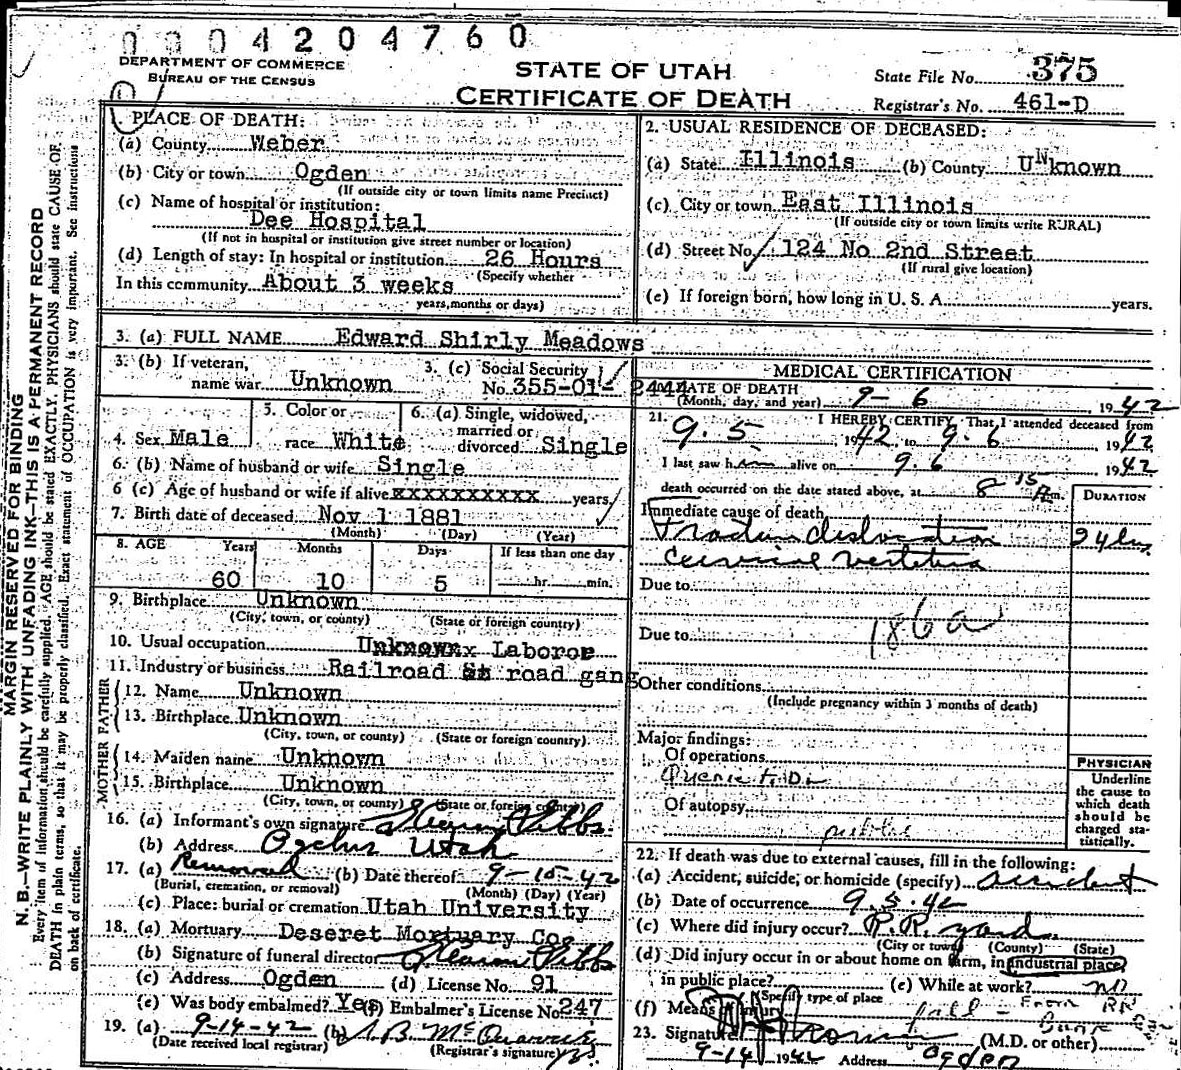 0004204760
DEPARTMENT OF COMMERCE
BUREAU OF THE CENSUS
STATE OF UTAH
CERTIFICATE OF DEATH
State File No. 375
Registrar's No. 461-D
MARGIN RESERVED FOR BINDING
N. B.—WRITE PLAINLY WITH UNFADING INK—THIS IS A PERMANENT RECORD
Every item of information should be carefully supplied. AGE should be stated EXACTLY. PHYSICIANS should state CAUSE OF
DEATH in plain terms, so that it may be properly classified. Exact statement of OCCUPATION is very important. See instructions
on back of certificate.
1. PLACE OF DEATH:
(a) County Weber
(b) City or town Ogden
(If outside city or town limits name Precinct)
(c) Name of hospital or institution:
Dee Hospital
(If not in hospital or institution give street number or location)
(d) Length of stay: In hospital or institution 26 Hours
(Specify whether
In this community About 3 weeks
years, months or days)
2. USUAL RESIDENCE OF DECEASED:
(a) State Illinois (b) County UNknown
(c) City or town East Illinois
(If outside city or town limits write RURAL)
(d) Street No. 124 No 2nd Street
(If rural give location)
(e) If foreign born, how long in U. S. A. years.
3. (a) FULL NAME Edward Shirly Meadows
3. (b) If veteran, name war Unknown
3. (c) Social Security No. 355-01-2444
4. Sex Male
5. Color or race White
6. (a) Single, widowed, married or divorced Single
6. (b) Name of husband or wife Single
6 (c) Age of husband or wife if alive xxxxxxxxxx years
7. Birth date of deceased Nov 1 1881
(Month) (Day) (Year)
8. AGE Years Months Days If less than one day
60 10 5 hr. min.
9. Birthplace Unknown
(City, town, or county) (State or foreign country)
10. Usual occupation Laboror
11. Industry or business Railroad road gang
FATHER
12. Name Unknown
13. Birthplace Unknown
(City, town, or county) (State or foreign country)
MOTHER
14. Maiden name Unknown
15. Birthplace Unknown
(City, town, or county) (State or foreign country)
16. (a) Informant's own signature
(b) Address Ogden Utah
17. (a) Removal (b) Date thereof 9-15-42
(Burial, cremation, or removal) (Month) (Day) (Year)
(c) Place: burial or cremation Utah University
18. (a) Mortuary Deseret Mortuary Co
(b) Signature of funeral director
(c) Address Ogden (d) License No. 91
(e) Was body embalmed? Yes (f) Embalmer's License No 247
19. (a) 9-14-42 (b)
(Date received local registrar) (Registrar's signature)
MEDICAL CERTIFICATION
20. DATE OF DEATH 9-6, 1942
(Month, day, and year)
21. I HEREBY CERTIFY, That I attended deceased from
9.5 1942, to 9.6 1942
I last saw him alive on 9.6 1942
death occurred on the date stated above, at 8 15 A m.
DURATION
Immediate cause of death
dislocation 24 hrs
cervical vertebra
Due to
Due to
186a
Other conditions
(Include pregnancy within 3 months of death)
Major findings:
Of operations
Of autopsy
PHYSICIAN
Underline
the cause to
which death
should be
charged sta-
tistically.
22. If death was due to external causes, fill in the following:
(a) Accident, suicide, or homicide (specify) accident
(b) Date of occurrence 9.5.42
(c) Where did injury occur? R.R. yard
(City or town) (County) (State)
(d) Did injury occur in or about home on farm, in industrial place,
in public place? (e) While at work? no
(Specify type of place
(f) Means of injury fall - From RR
23. Signature (M.D. or other)
9-14 1942 Address Ogden